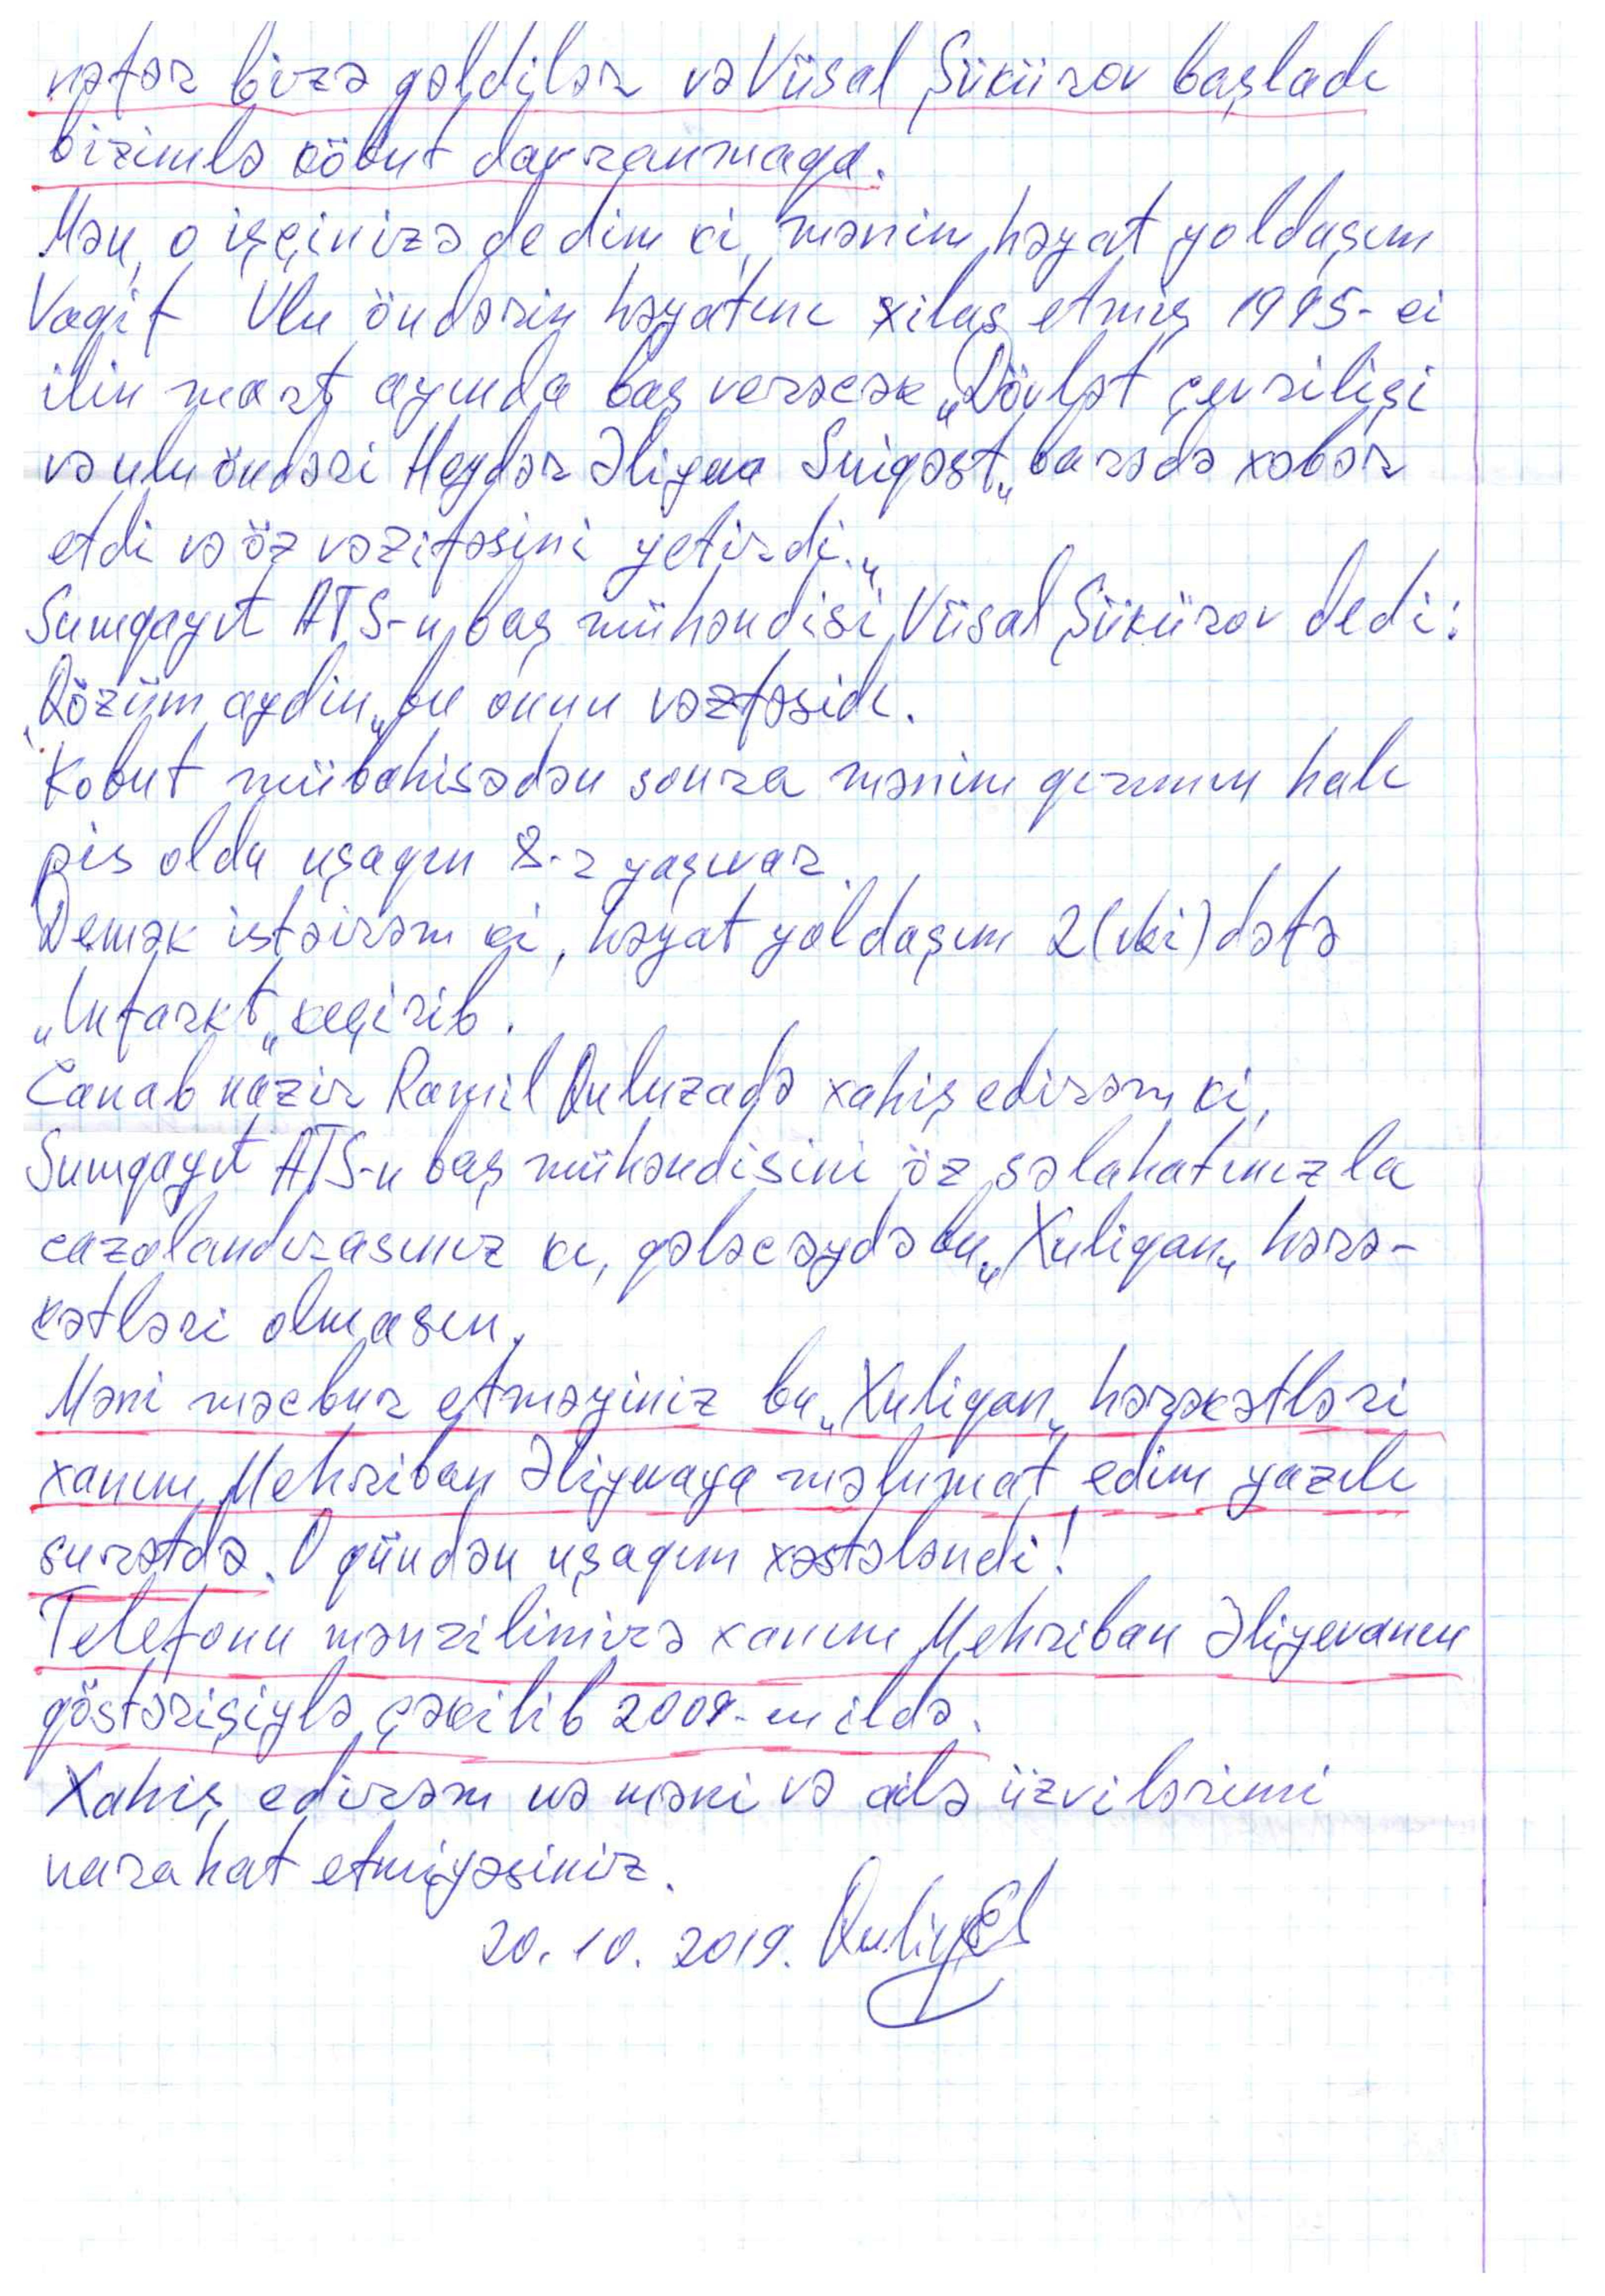 nəfər bizə gəldilər və Vüsal Şükürov başladı
bizimlə köbut davranmaqa.
Mən, o işçinizə dedim ki, mənim həyat yoldaşım
Vaqif Ulu öndərin həyatını xilas etmiş 1995-ci
ilin mart ayında baş verəcək „Dövlət çevrilişi
və ulu öndəri Heydər Əliyevə Suiqəst„ barədə xəbər
etdi və öz vəzifəsini yetirdi.„
Sumqayıt ATS-n baş mühəndisi Vüsal Şükürov dedi:
„Gözüm aydin„ bu onun vəzfəsidı.
Kobut mübahisədən sonra mənim qızımın halı
pis oldu uşaqın 8-z yaşıvar.
Demək istəirəm ki, həyat yoldaşım 2(iki) dəfə
„Infarkt„ keçirib.
Canab nazir Ramil Quluzadə xahiş edirəm ki,
Sumqayıt ATS-n baş mühəndisini öz səlahatınızla
cazalandırasınız kı, gələcəydə bu „Xuliqan„ hərə-
kətləri olmasın.
Məni məcbur etməyiniz bu „Xuliqan„ hərəkətləri
xanım Mehriban Əliyevaya məlumat edim yazılı
surətdə. O gündən uşaqım xəstələndi!
Telefonu mənzilimizə xanım Mehriban Əliyevanın
göstərişiylə çəkilib 2009-u ildə.
Xahiş edirəm nə məni və ailə üzvilərimi
narahat etmiyəsiniz.
20.10.2019.